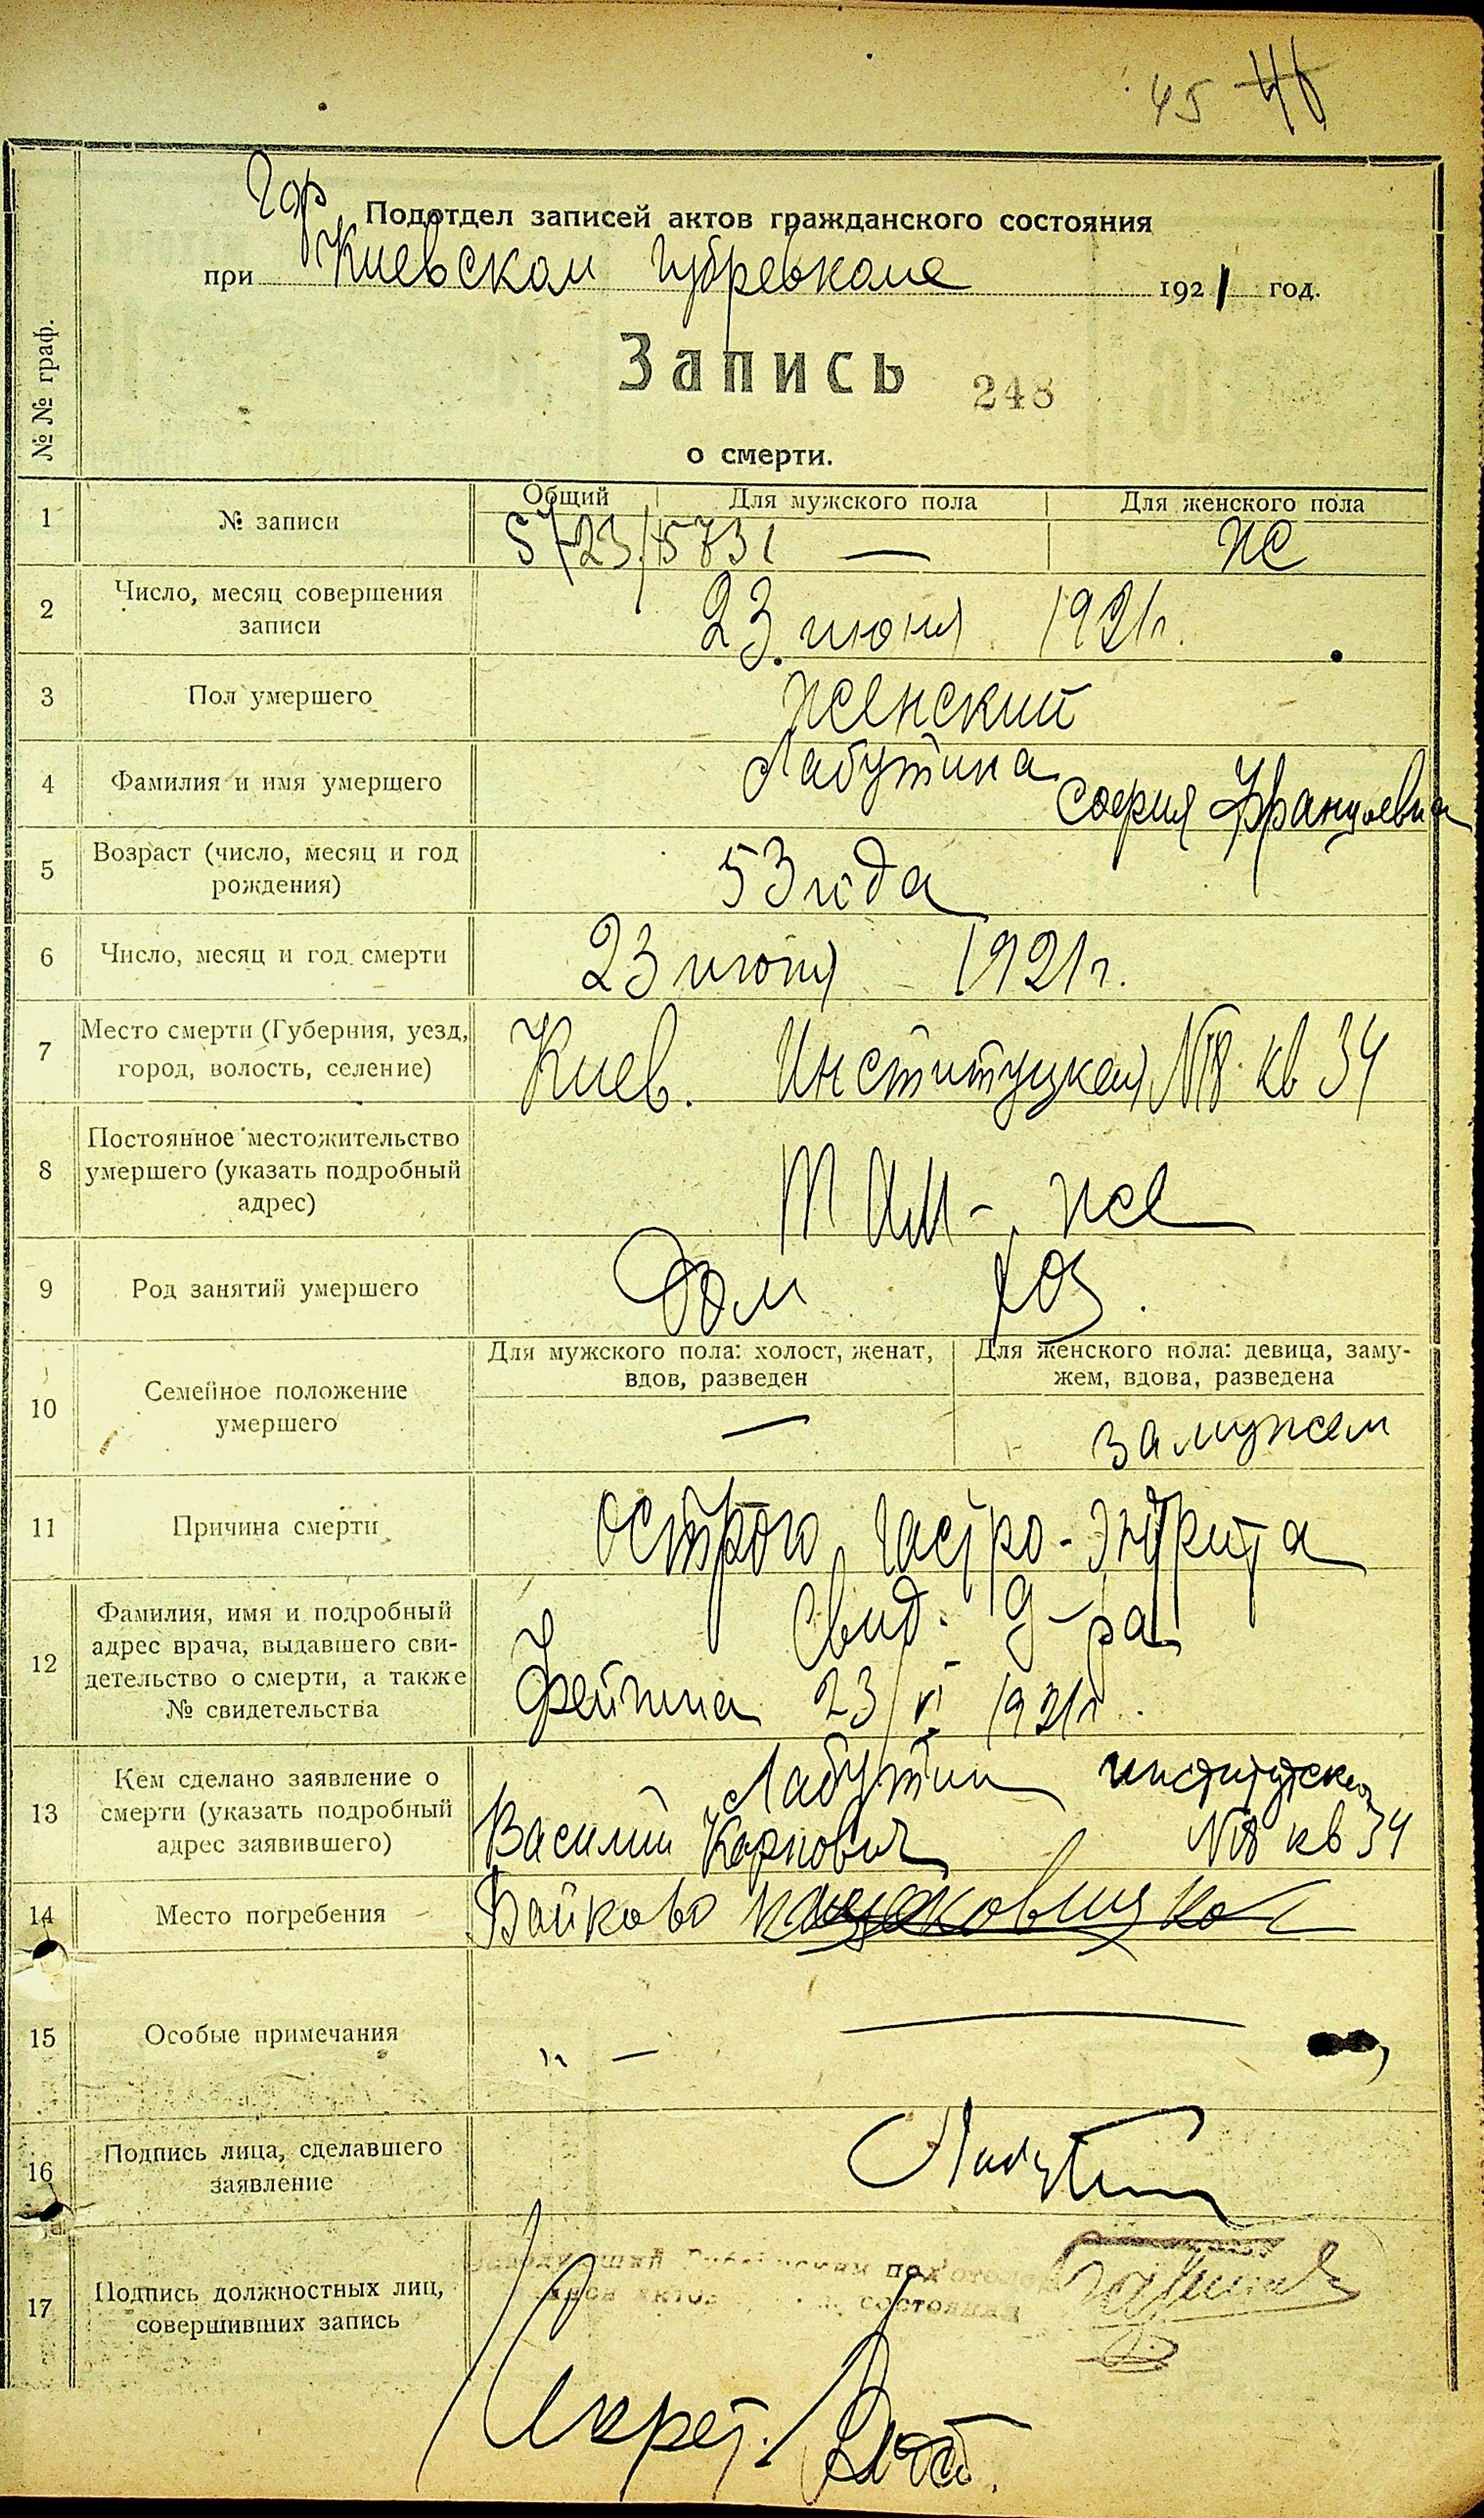 45 46
Гор
Подотдел записей актов гражданского состояния
при Киевском Губревкоме 1921 год.
Запись 248
о смерти.
№№ граф.
Общий Для мужского пола Для женского пола
1 № записи — же
2 Число, месяц совершения записи 23 июня 1921 г.
3 Пол умершего женский
4 Фамилия и имя умершего Лабутина
София Францевна
5 Возраст (число, месяц и год рождения) 53 года
6 Число, месяц и год смерти 23 июня 1921 г.
7 Место смерти (Губерния, уезд, город, волость, селение) Киев. Институцкая №18 кв 34
8 Постоянное местожительство умершего (указать подробный адрес) там-же
9 Род занятий умершего Дом хоз.
Для мужского пола: холост, женат, вдов, разведен
Для женского пола: девица, замужем, вдова, разведена
10 Семейное положение умершего — замужем
11 Причина смерти острого гастро-энтрита
12 Фамилия, имя и подробный адрес врача, выдавшего свидетельство о смерти, а также № свидетельства Свид. д-ра
23/VI 1921 г.
13 Кем сделано заявление о смерти (указать подробный адрес заявившего) Лабутин институтская
Василий Карпович №18 кв 34
14 Место погребения Байково
15 Особые примечания " —
16 Подпись лица, сделавшего заявление Лабутин
17 Подпись должностных лиц, совершивших запись
Секрет.